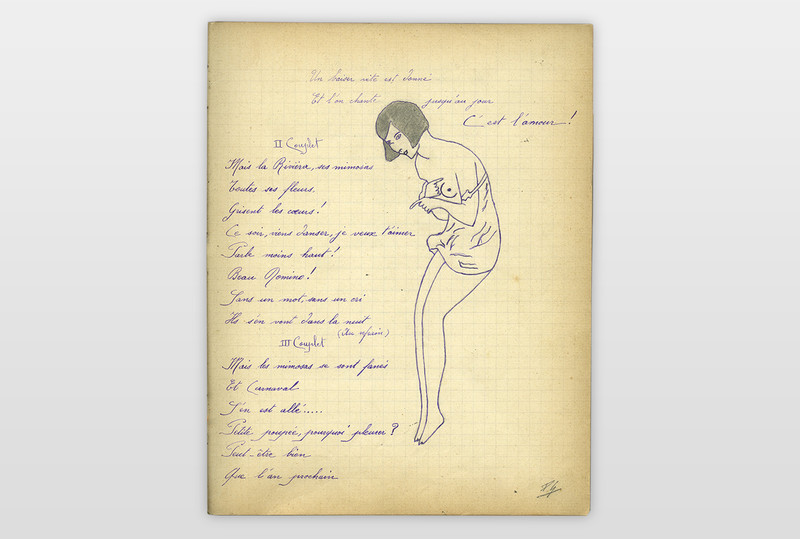 Un baiser vite est donné
Et l'on chante jusqu'au jour
C'est l'amour !
II Couplet
Mais la Riviéra, ses mimosas
Toutes ses fleurs.
Grisent les cœurs !
Ce soir, viens danser, je veux t'aimer
Parle moins haut !
Beau Domino !
Sans un mot, sans un cri
Ils s'en vont dans la nuit
(Au refrain)
III Couplet
Mais les mimosas se sont fanés
Et Carnaval
S'en est allé.....
Petite poupée, pourquoi pleurer ?
Peut-être bien
Que l'an prochain